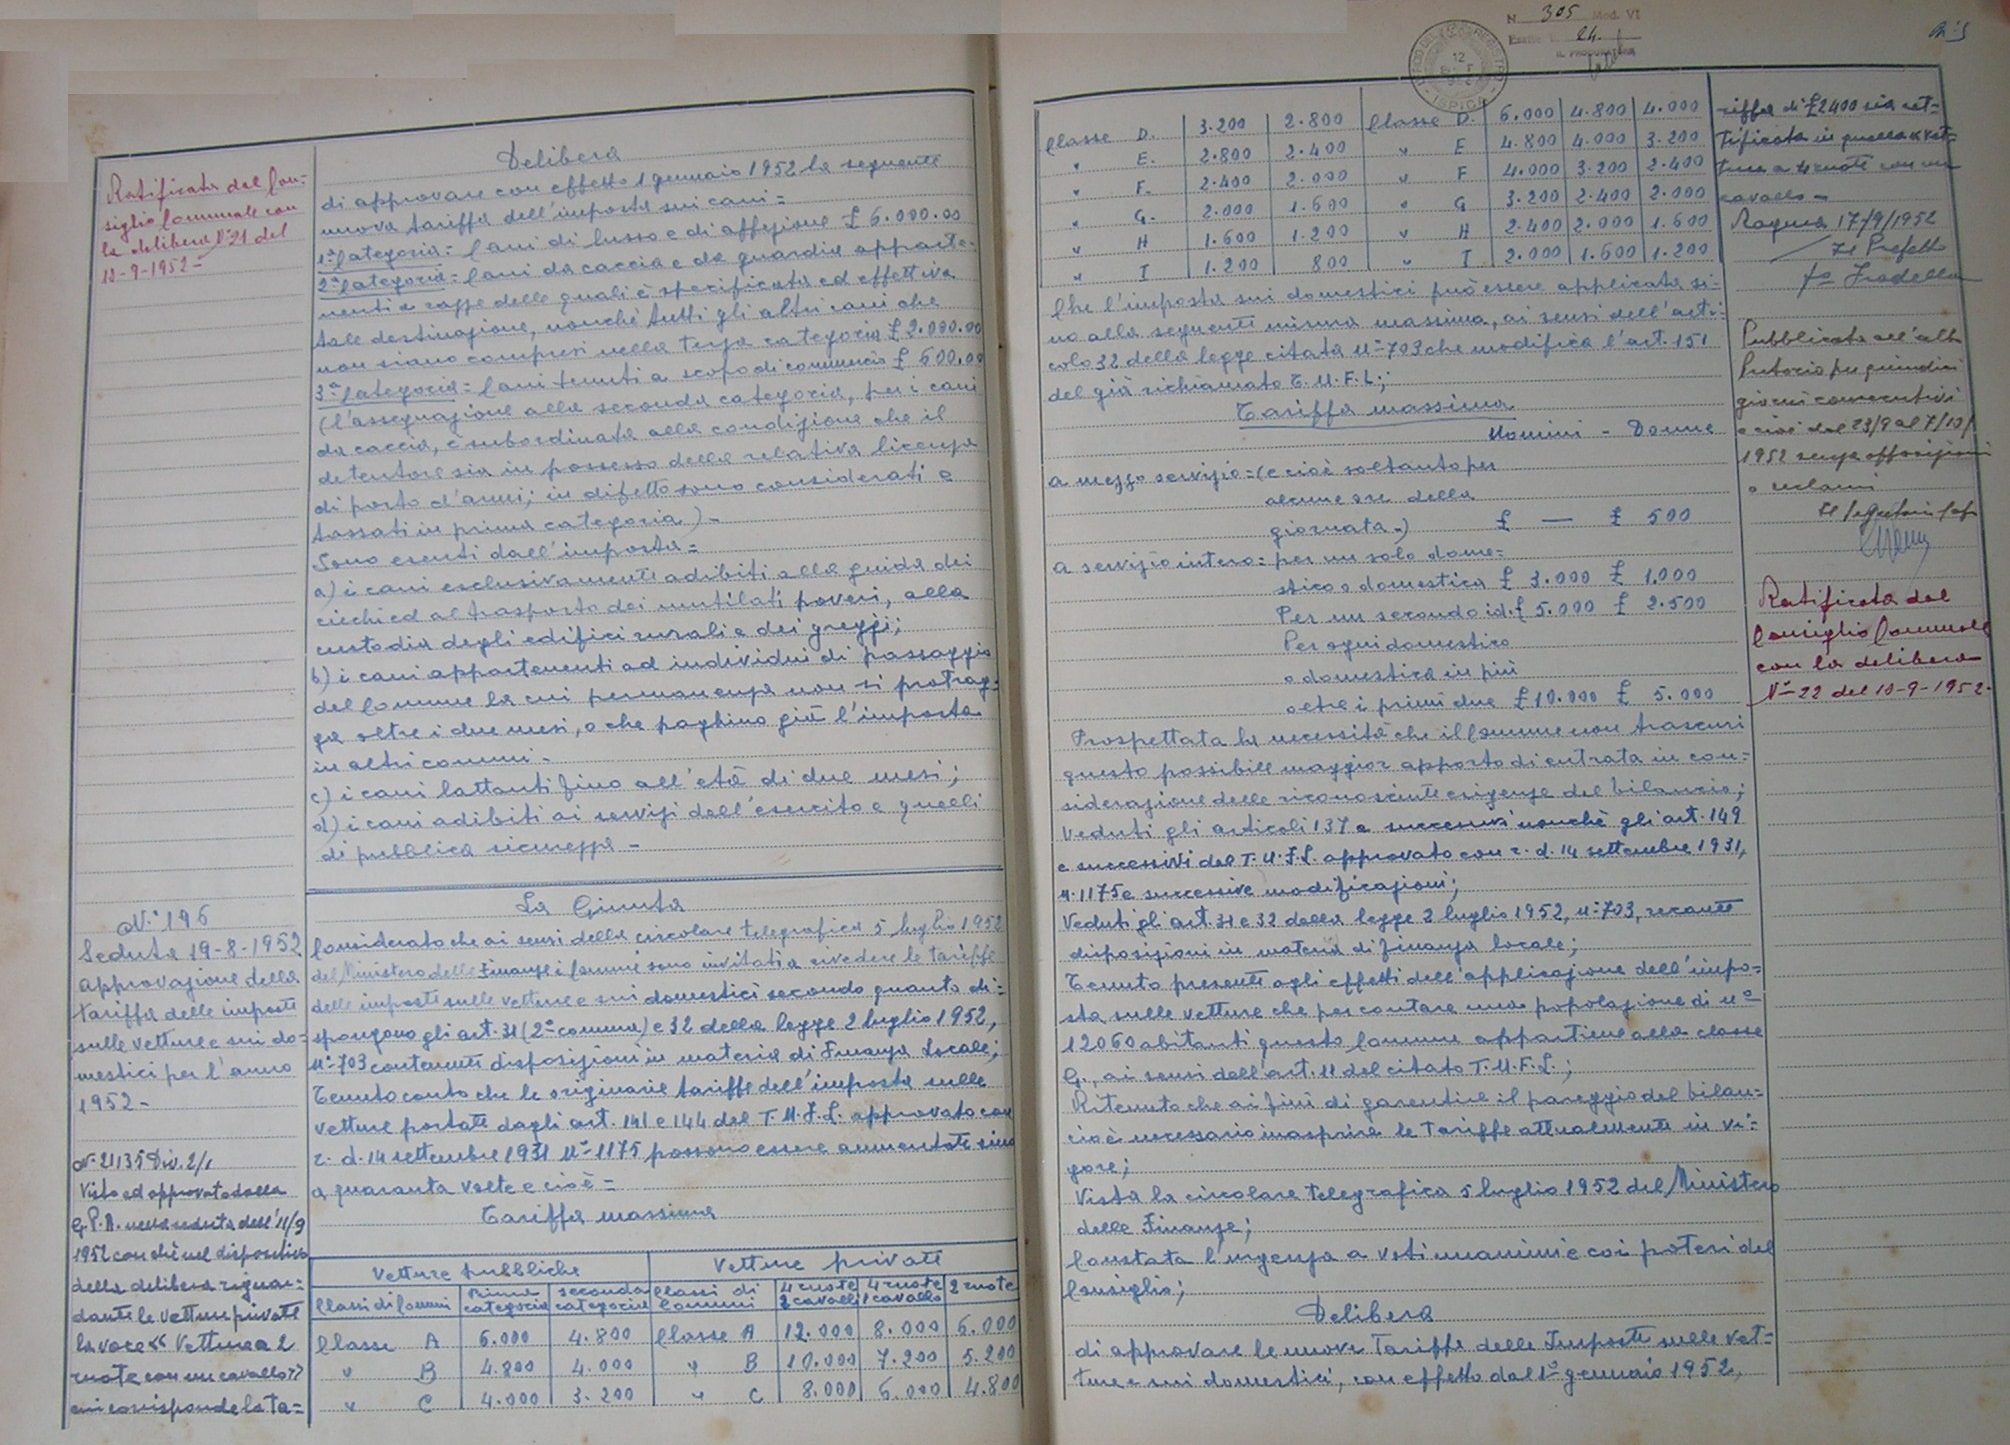 Ratificata dal Con-
siglio Comunale con
la delibera N° 21 del
10-9-1952-
Delibera
di approvare con effetto 1 gennaio 1952 la seguente
nuova tariffa dell'imposta sui cani=
1ª Categoria= Cani di lusso e di affezione £ 6.000.00
2ª Categoria= Cani da caccia e da guardia apparte-
nenti a razze delle quali è specificata ed effettiva
tale destinazione, nonchè tutti gli altri cani che
non siano compresi nella terza categoria £ 2.000.00
3ª Categoria= Cani tenuti a scopo di commercio £ 600.00
(l'assegnazione alla seconda categoria, per i cani
da caccia, è subordinata alla condizione che il
detentore sia in possesso della relativa licenza
di porto d'armi; in difetto sono considerati e
tassati in prima categoria)-
Sono esenti dall'imposta=
a) i cani esclusivamente adibiti alla guida dei
ciechi ed al trasporto dei mutilati poveri, alla
custodia degli edifici rurali e dei greggi;
b) i cani appartenenti ad individui di passaggio
del Comune la cui permanenza non si protrag-
ga oltre i due mesi, o che paghino già l'imposta
in altri comuni-
c) i cani lattanti fino all'età di due mesi;
d) i cani adibiti ai servizi dell'esercito e quelli
di pubblica sicurezza-
N° 196
Seduta 19-8-1952
approvazione della
tariffa delle imposte
sulle vetture e sui do-
mestici per l'anno
1952-
N° 21135 Div. 2/1
Visto ed approvato dalla
G.P.A. nella seduta dell'11/9
1952 con chè nel dispositivo
della delibera riguar-
dante le vetture private
la voce "Vettura a 2
ruote con un cavallo"
cui corrisponde la ta=
La Giunta
Considerato che ai sensi della circolare telegrafica 5 luglio 1952
del Ministero delle Finanze i Comuni sono invitati a rivedere le tariffe
delle imposte sulle vetture e sui domestici secondo quanto di=
spongono gli art. 31 (2° comma) e 32 della legge 2 luglio 1952,
N° 703 contenente disposizioni in materia di Finanza Locale;
Tenuto conto che le originarie tariffe dell'imposta sulle
vetture portate dagli art. 141 e 144 del T.U.F.L. approvato con
r. d. 14 settembre 1931 N° 1175 possono essere aumentate sino
a quaranta volte e cioè=
Tariffa massima
Vetture pubbliche Vetture private
Classi di Comuni prima categoria seconda categoria Classi di Comuni 4 ruote 2 cavalli 4 ruote 1 cavallo 2 ruote
Classe A 6.000 4.800 Classe A 12.000 8.000 6.000
" B 4.800 4.000 " B 10.000 7.200 5.200
" C 4.000 3.200 " C 8.000 6.000 4.800
N. 305 Mod. VI
24.
IL PROCURATORE
ISPICA
12
Classe D. 3.200 2.800 Classe D. 6.000 4.800 4.000
" E. 2.800 2.400 " E 4.800 4.000 3.200
" F. 2.400 2.000 " F 4.000 3.200 2.400
" G. 2.000 1.600 " G 3.200 2.400 2.000
" H 1.600 1.200 " H 2.400 2.000 1.600
" I 1.200 800 " I 2.000 1.600 1.200
Che l'imposta sui domestici può essere applicata si-
no alla seguente misura massima, ai sensi dell'arti-
colo 32 della legge citata N° 703 che modifica l'art. 151
del già richiamato T.U.F.L.;
Tariffa massima
Uomini - Donne
a mezzo servizio= (e cioè soltanto per
alcune ore della
giornata-) £ — £ 500
a servizio intero= per un solo dome=
stico o domestica £ 3.000 £ 1.000
Per un secondo id. £ 5.000 £ 2.500
Per ogni domestico
o domestica in più
oltre i primi due £ 10.000 £ 5.000
Prospettata la necessità che il Comune non trascuri
questo possibile maggior apporto di entrata in con-
siderazione delle riconosciute esigenze del bilancio;
Veduti gli articoli 137 e successivi nonchè gli art. 149
e successivi del T.U.F.L. approvato con r. d. 14 settembre 1931,
N. 1175 e successive modificazioni;
Veduti gli art. 31 e 32 della legge 2 luglio 1952, N° 703, recante
disposizioni in materia di finanza locale;
Tenuto presente agli effetti dell'applicazione dell'impo-
sta sulle vetture che per contare una popolazione di N°
12060 abitanti questo Comune appartiene alla classe
G., ai sensi dell'art. 11 del citato T.U.F.L.;
Ritenuto che ai fini di garentire il pareggio del bilan-
cio è necessario inasprire le tariffe attualmente in vi-
gore;
Vista la circolare telegrafica 5 luglio 1952 del Ministero
delle Finanze;
Constatata l'urgenza a voti unanimi e coi poteri del
Consiglio;
Delibera
di approvare le nuove Tariffe delle Imposte sulle vet-
ture e sui domestici, con effetto dal 1° gennaio 1952,
riffa di £ 2400 sia ret=
tificata in quella "vet=
tura a 4 ruote con un
cavallo-
Ragusa 17/9/1952
Il Prefetto
Pubblicata all'albo
Pretorio per quindici
giorni consecutivi
e cioè dal 23/9 al 7/10/
1952 senza opposizioni
o reclami
Il Segretario Capo
Ratificata dal
Consiglio Comunale
con la delibera
N° 22 del 10-9-1952-